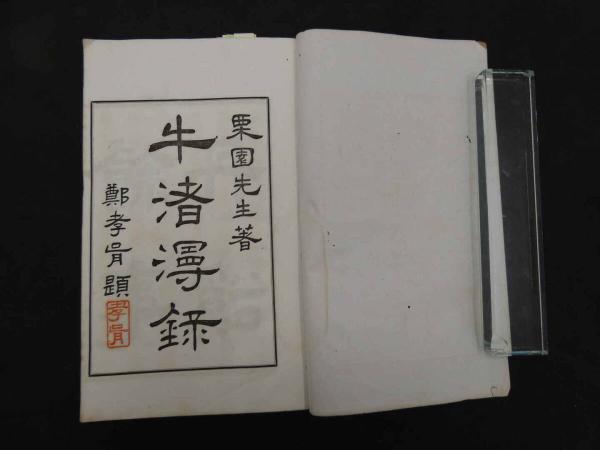 栗園先生著
牛渚漫録
鄭孝胥題
孝胥